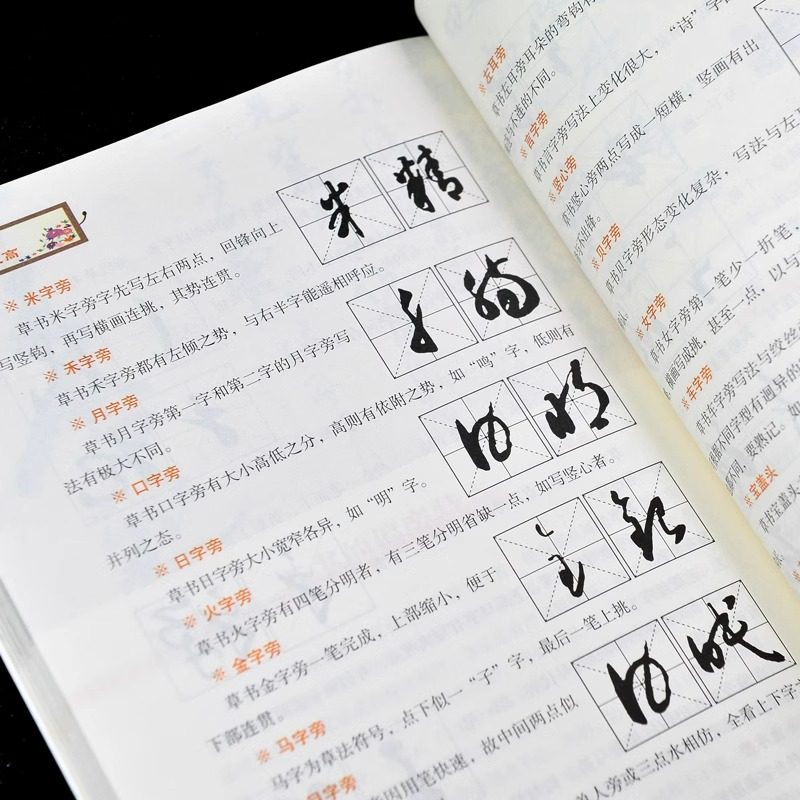 高
※ 米字旁
草书米字旁字先写左右两点，回锋向上
写竖钩，再写横画连挑，其势连贯。
※ 禾字旁
草书禾字旁都有左倾之势，与右半字能遥相呼应。
※ 月字旁
草书月字旁第一字和第二字的月字旁写
法有极大不同。
※ 口字旁
草书口字旁有大小高低之分，高则有依附之势，如“鸣”字，低则有
并列之态。
※ 日字旁
草书日字旁大小宽窄各异，如“明”字。
※ 火字旁
草书火字旁有四笔分明者，有三笔分明省缺一点，如写竖心者。
※ 金字旁
草书金字旁一笔完成，上部缩小，便于
下部连贯。
※ 马字旁
马字为草法符号，点下似一“子”字，最后一笔上挑。
目字旁
因用笔快速，故中间两点似
人旁或三点水相仿，全看上下字
米 精
※ 左耳旁
草书左耳旁耳朵的弯钩有
与不连的不同。
※ 言字旁
草书言字旁写法上变化很大，“诗”字
※ 竖心旁
草书竖心旁两点写成一短横，竖画有出
有不出锋。
※ 贝字旁
草书贝字旁形态变化复杂，写法与左
※ 女字旁
草书女字旁第一笔少一折笔，
横画写成挑，甚至一点，以与
※ 车字旁
草书车字旁写法与绞丝
部不同字型有迥异的
不同，要熟记。如
※ 宝盖头
草书宝盖头